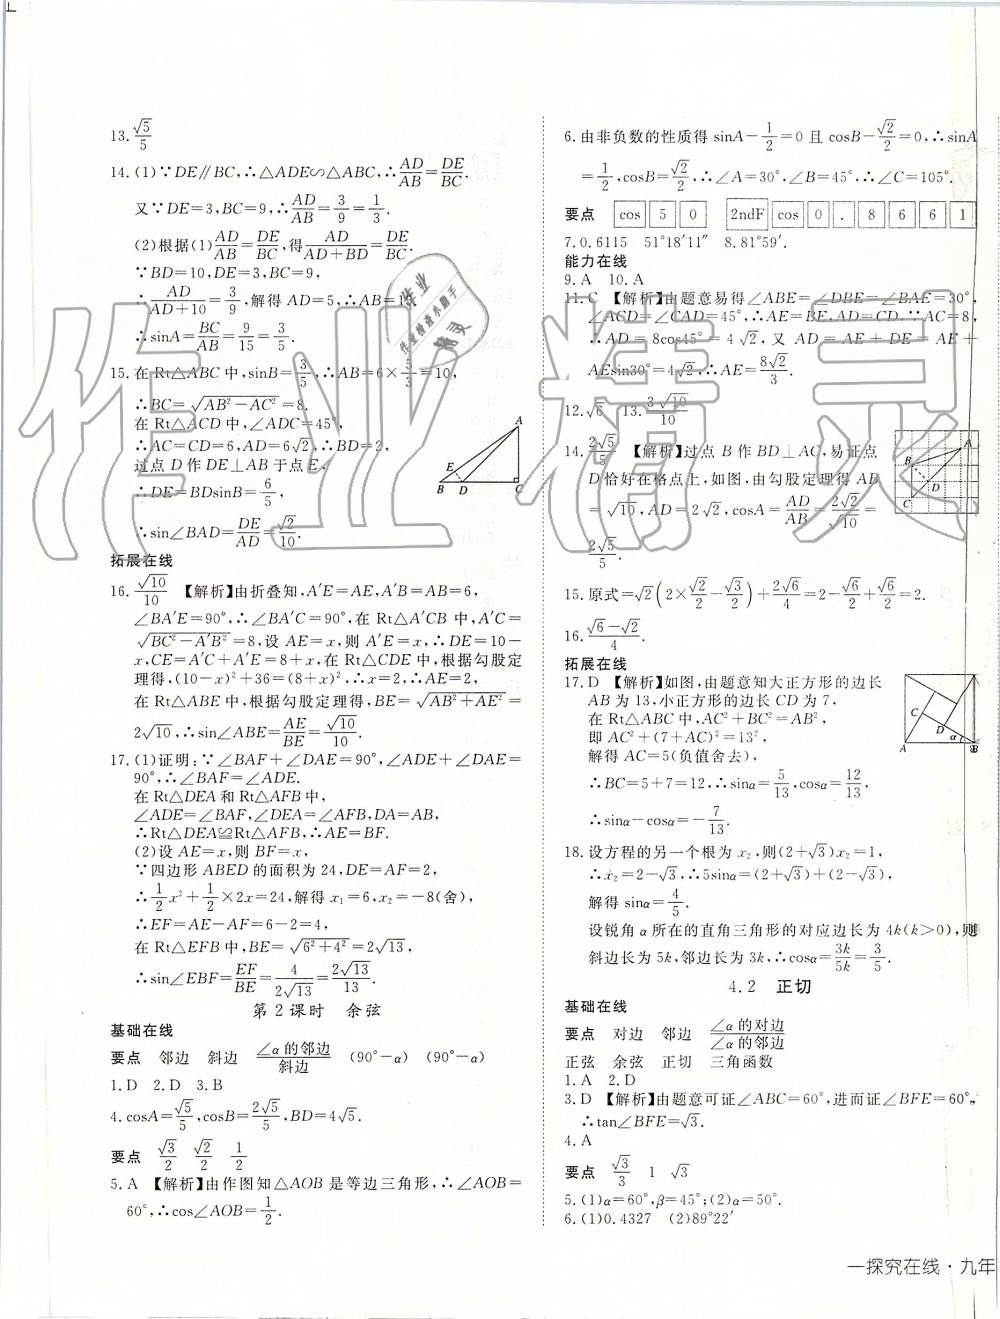 13. √5/5
14. (1)∵DE∥BC,∴△ADE∽△ABC,∴AD/AB=DE/BC.
又∵DE=3,BC=9,∴AD/AB=3/9=1/3.
(2)根据(1)AD/AB=DE/BC,得AD/(AD+BD)=DE/BC.
∵BD=10,DE=3,BC=9,
∴AD/(AD+10)=3/9,解得AD=5,∴AB=15,
∴sinA=BC/AB=9/15=3/5.
15. 在Rt△ABC中,sinB=3/5,∴AB=6×5/3=10,
∴BC=√(AB²-AC²)=8.
在Rt△ACD中,∠ADC=45°,
∴AC=CD=6,AD=6√2,∴BD=2.
过点D作DE⊥AB于点E,
∴DE=BDsinB=6/5,
∴sin∠BAD=DE/AD=√2/10.
A
E
B D C
拓展在线
16. √10/10 【解析】由折叠知,A′E=AE,A′B=AB=6,
∠BA′E=90°,∴∠BA′C=90°,在Rt△A′CB中,A′C=
√(BC²-A′B²)=8,设AE=x,则A′E=x,∴DE=10-
x,CE=A′C+A′E=8+x,在Rt△CDE中,根据勾股定
理得,(10-x)²+36=(8+x)²,∴x=2,∴AE=2,
在Rt△ABE中,根据勾股定理得,BE=√(AB²+AE²)=
2√10,∴sin∠ABE=AE/BE=√10/10.
17. (1)证明:∵∠BAF+∠DAE=90°,∠ADE+∠DAE=
90°,∴∠BAF=∠ADE.
在Rt△DEA和Rt△AFB中,
∠ADE=∠BAF,∠DEA=∠AFB,DA=AB,
∴Rt△DEA≌Rt△AFB,∴AE=BF.
(2)设AE=x,则BF=x,
∵四边形ABED的面积为24,DE=AF=2,
∴1/2x²+1/2×2x=24,解得x₁=6,x₂=-8(舍),
∴EF=AE-AF=6-2=4,
在Rt△EFB中,BE=√(6²+4²)=2√13,
∴sin∠EBF=EF/BE=4/(2√13)=2√13/13.
第2课时 余弦
基础在线
要点 邻边 斜边 ∠α的邻边/斜边 (90°-α) (90°-α)
1. D 2. D 3. B
4. cosA=√5/5,cosB=2√5/5,BD=4√5.
要点 √3/2 √2/2 1/2
5. A 【解析】由作图知△AOB是等边三角形,∴∠AOB=
60°,∴cos∠AOB=1/2.
6. 由非负数的性质得sinA-1/2=0且cosB-√2/2=0,∴sinA
=1/2,cosB=√2/2,∴∠A=30°,∠B=45°,∴∠C=105°.
要点 cos 5 0 2ndF cos 0 . 8 6 6 1
7. 0.6115 51°18′11″ 8. 81°59′.
能力在线
9. A 10. A
11. C 【解析】由题意易得∠ABE=∠DBE=∠BAE=30°,
∠ACD=∠CAD=45°,∴AE=BE,AD=CD.∵AC=8,
∴AD=8cos45°=4√2,又AD=AE+DE=AE+
AEsin30°=4√2,∴AE=8√2/3.
12. √6 13. 3√10/10
14. 2√5/5 【解析】过点B作BD⊥AC,易证点
D恰好在格点上,如图,由勾股定理得AB
=√10,AD=2√2,cosA=AD/AB=2√2/√10=
2√5/5.
A
B
D
C
15. 原式=√2(2×√2/2-√3/2)+2√6/4=2-√6/2+√6/2=2.
16. (√6-√2)/4.
拓展在线
17. D 【解析】如图,由题意知大正方形的边长
AB为13,小正方形的边长CD为7,
在Rt△ABC中,AC²+BC²=AB²,
即AC²+(7+AC)²=13².
解得AC=5(负值舍去),
∴BC=5+7=12,∴sinα=5/13,cosα=12/13,
∴sinα-cosα=-7/13.
C
D α
A B
18. 设方程的另一个根为x₂,则(2+√3)x₂=1,
∴x₂=2-√3,∴5sinα=(2+√3)+(2-√3),
解得sinα=4/5.
设锐角α所在的直角三角形的对应边长为4k(k>0),则
斜边长为5k,邻边长为3k,∴cosα=3k/5k=3/5.
4.2 正切
基础在线
要点 对边 邻边 ∠α的对边/∠α的邻边
正弦 余弦 正切 三角函数
1. A 2. D
3. D 【解析】由题意可证∠ABC=60°,进而证∠BFE=60°,
∴tan∠BFE=√3.
4. A
要点 √3/3 1 √3
5. (1)α=60°,β=45°;(2)α=50°.
6. (1)0.4327 (2)89°22′
一探究在线·九年
作业精灵
作业
作业检查小助手
精灵